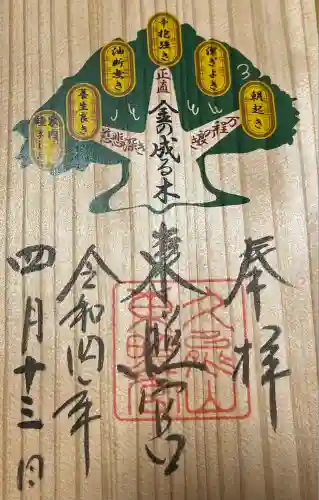 朝起き
潔ぎよき
辛抱強き
油断無き
養生良き
家内睦まじき
万程の良き
慈悲深き
正直
金の成る木
奉拝
東照宮
令和四年
四月十三日